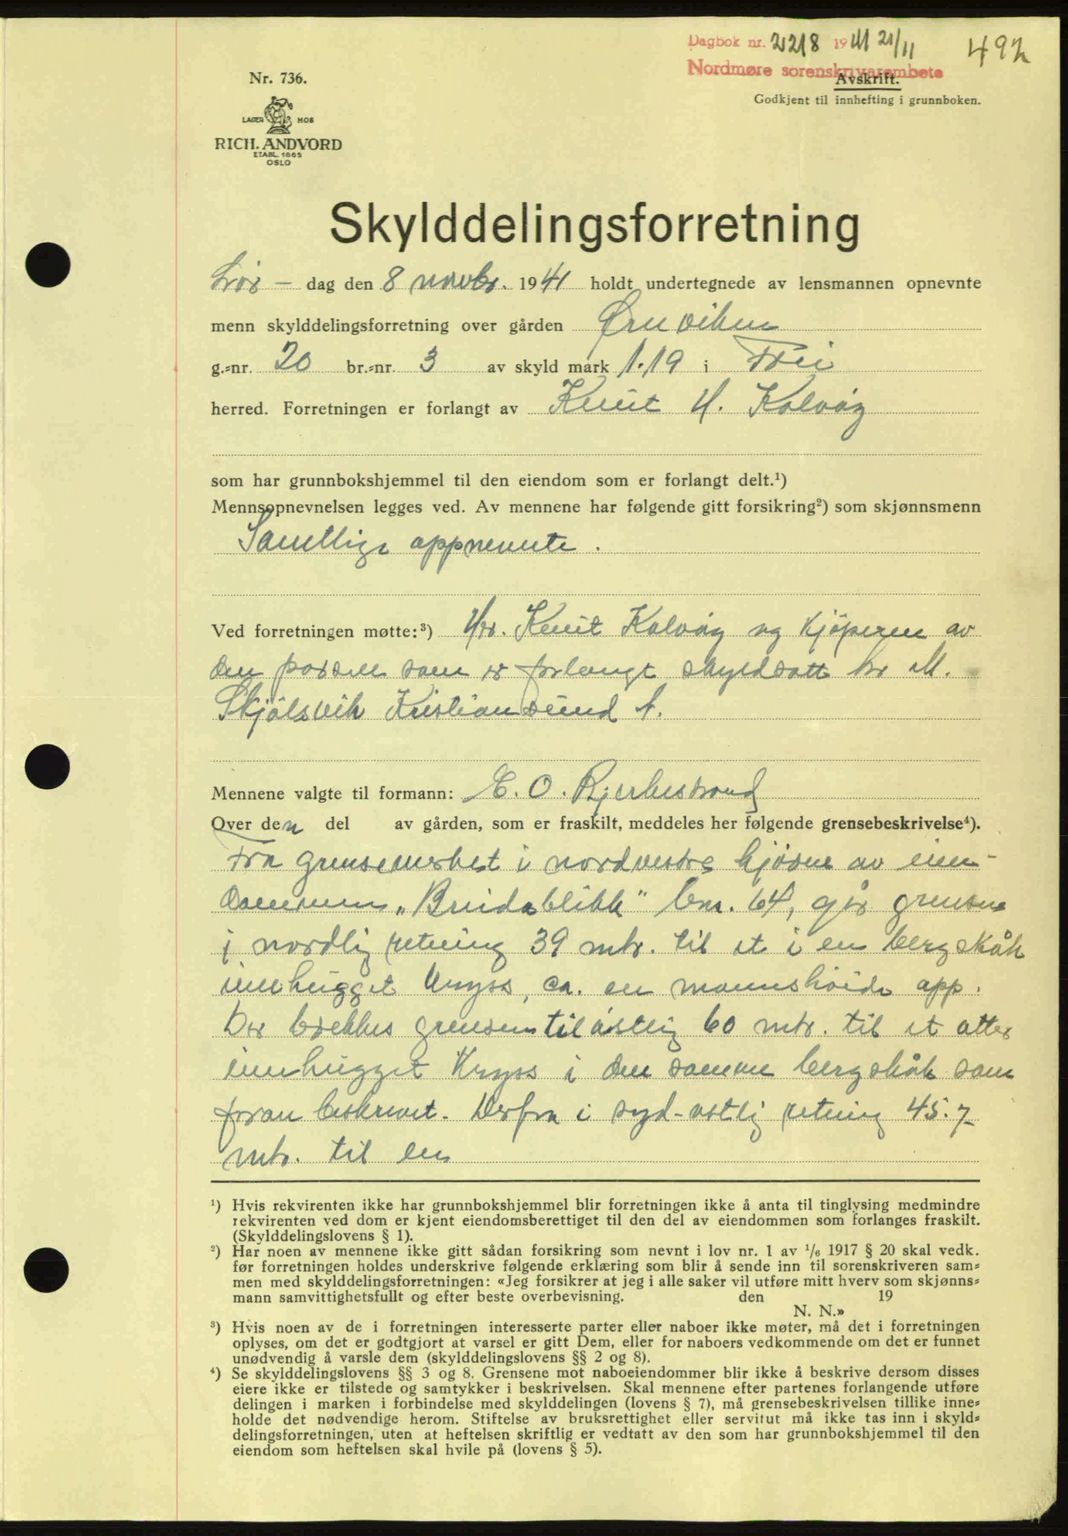 Dagbok nr. 2218 1941 21/11 492
Nordmøre sorenskrivarembete
Nr. 736.
Avskrift.
Godkjent til innhefting i grunnboken.
LAGER HOS
RICH. ANDVORD
ETABL. 1865
OSLO
Skylddelingsforretning
Lør – dag den 8 novbr. 1941 holdt undertegnede av lensmannen opnevnte
menn skylddelingsforretning over gården Ørnviken
g.=nr. 20 br.=nr. 3 av skyld mark 1.19 i Frei
herred. Forretningen er forlangt av Knut H. Kalvåg
som har grunnbokshjemmel til den eiendom som er forlangt delt.¹)
Mennsopnevnelsen legges ved. Av mennene har følgende gitt forsikring²) som skjønnsmenn
Samtlige oppnevnte .
Ved forretningen møtte:³) Hr. Knut Kalvåg og kjöperen av
den parsell som er forlangt skyldsatt hr M.
Skjölsvik Kristiansund N.
Mennene valgte til formann: E. O. Bjerkestrand
Over den del av gården, som er fraskilt, meddeles her følgende grensebeskrivelse⁴).
Fra grensemerket i nordvestre hjörne av eien-
dommen „Breidablikk" bnr. 64, går grensen
i nordlig retning 39 mtr. til et i en bergskåk
innhugget kryss, ca. en mannshöide opp.
Der brekkes grensen til östlig 60 mtr. til et atter
innhugget kryss i den samme bergskåk som
foran beskrevet. Derfra i syd-ostlig retning 45.7
mtr. til en
¹) Hvis rekvirenten ikke har grunnbokshjemmel blir forretningen ikke å anta til tinglysing medmindre
rekvirenten ved dom er kjent eiendomsberettiget til den del av eiendommen som forlanges fraskilt.
(Skylddelingslovens § 1).
²) Har noen av mennene ikke gitt sådan forsikring som nevnt i lov nr. 1 av ¹/₆ 1917 § 20 skal vedk.
før forretningen holdes underskrive følgende erklæring som blir å sende inn til sorenskriveren sam=
men med skylddelingsforretningen: «Jeg forsikrer at jeg i alle saker vil utføre mitt hverv som skjønns=
mann samvittighetsfullt og efter beste overbevisning. den 19
N. N.»
³) Hvis noen av de i forretningen interesserte parter eller naboer ikke møter, må det i forretningen
oplyses, om det er godtgjort at varsel er gitt Dem, eller for naboers vedkommende om det er funnet
unødvendig å varsle dem (skylddelingslovens §§ 2 og 8).
⁴) Se skylddelingslovens §§ 3 og 8. Grensene mot naboeiendommer blir ikke å beskrive dersom disses
eiere ikke er tilstede og samtykker i beskrivelsen. Skal mennene efter partenes forlangende utføre
delingen i marken i forbindelse med skylddelingen (lovens § 7), må grensebeskrivelsen tillike inne=
holde det nødvendige herom. Stiftelse av bruksrettighet eller servitut må ikke tas inn i skyld=
delingsforretningen, uten at heftelsen skriftlig er vedtatt av den som har grunnbokshjemmel til den
eiendom som heftelsen skal hvile på (lovens § 5).